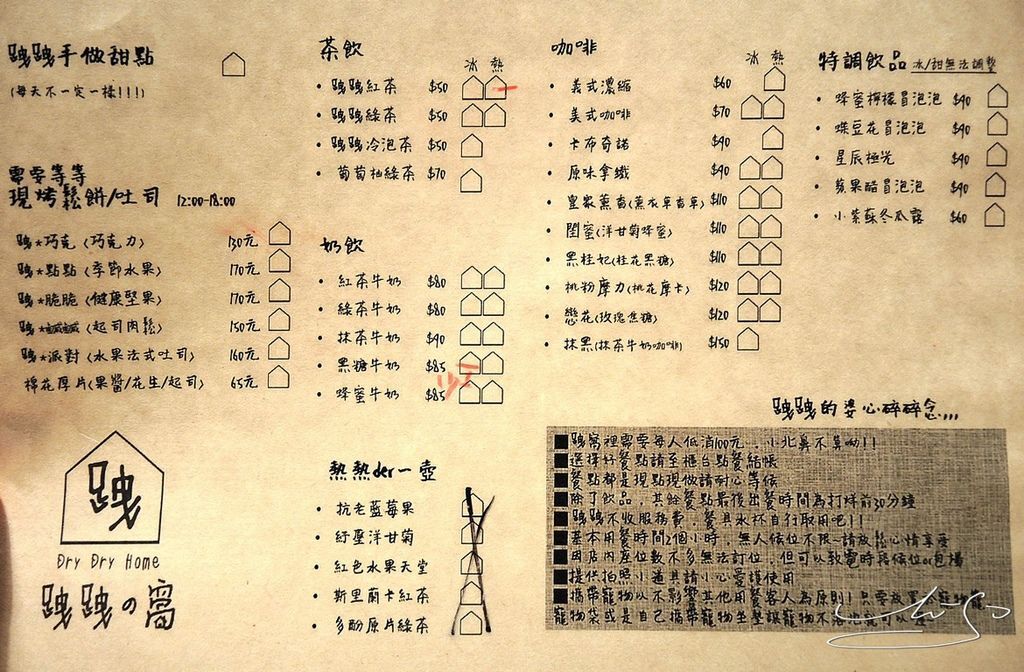 跩跩手做甜點
(每天不一定一樣!!!)
零零等等
現烤鬆餅/吐司 12:00-18:00
跩*巧克(巧克力) 130元
跩*點點(季節水果) 170元
跩*脆脆(健康堅果) 170元
跩*鹹鹹(起司肉鬆) 150元
跩*派對(水果法式吐司) 160元
棉花厚片(果醬/花生/起司) 65元
跩
Dry Dry Home
跩跩の窩
茶飲
冰 熱
• 跩跩紅茶 $50
• 跩跩綠茶 $50
• 跩跩冷泡茶 $50
• 葡萄柚綠茶 $70
奶飲
• 紅茶牛奶 $80
• 綠茶牛奶 $80
• 抹茶牛奶 $90
• 黑糖牛奶 $85
• 蜂蜜牛奶 $85
熱熱der一壺
• 抗老藍莓果
• 紓壓洋甘菊
• 紅色水果天堂
• 斯里蘭卡紅茶
• 多酚原片綠茶
咖啡
冰 熱
• 義式濃縮 $60
• 美式咖啡 $70
• 卡布奇諾 $90
• 原味拿鐵 $90
• 皇家薰香(薰衣草香草) $110
• 閨蜜(洋甘菊蜂蜜) $110
• 黑桂妃(桂花黑糖) $110
• 桃粉摩力(桃花摩卡) $120
• 戀花(玫瑰焦糖) $120
• 抹黑(抹茶牛奶咖啡) $150
特調飲品 冰/甜無法調整
• 蜂蜜檸檬冒泡泡 $90
• 蝶豆花冒泡泡 $90
• 星辰極光 $90
• 蘋果醋冒泡泡 $90
• 小紫蘇冬瓜露 $60
跩跩的婆心碎碎念,,,
■跩窩裡需要每人低消100元...小北鼻不算呦!!
■選擇好餐點請至櫃台點餐結帳
■餐點都是現點現做請耐心等候
■除了飲品,其餘餐點最後出餐時間為打烊前30分鐘
■跩跩不收服務費,餐具水杯自行取用吧!!
■基本用餐時間2個小時,無人候位不限~請放鬆心情享受
■因店內座位數不多無法訂位,但可以致電時段候位or包場
■提供拍照小道具請小心愛護使用
■攜帶寵物以不影響其他用餐客人為原則!只要放置於寵物籠
寵物袋或是自己攜帶寵物坐墊讓寵物不落地就可以